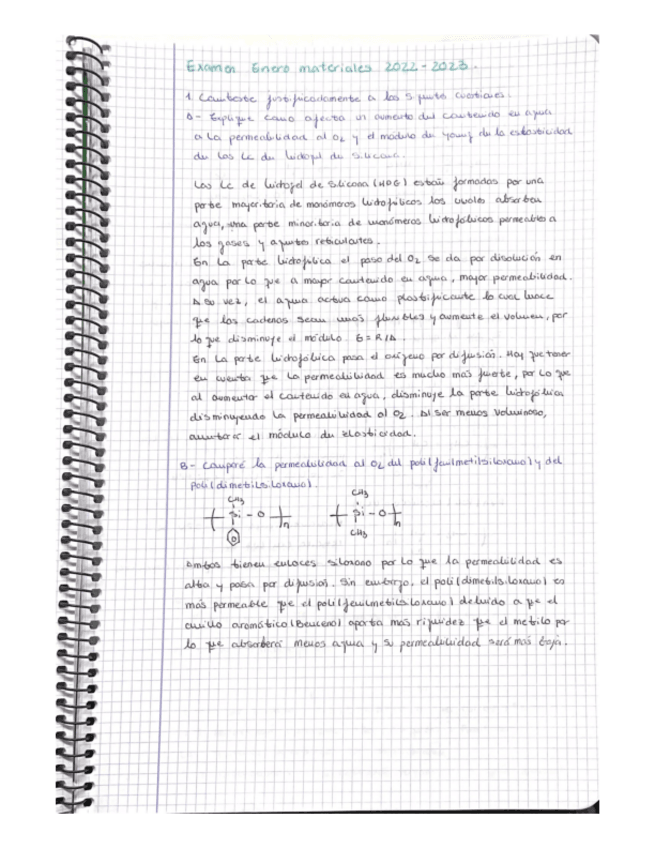 Examen Enero materiales 2022-2023.
1. Conteste justificadamente a las siguientes cuestiones.
A- Explique como afecta un aumento del contenido en agua
a la permeabilidad al O2 y el módulo de young de la elasticidad
de las LC de hidrogel de silicona.
Las LC de hidrogel de silicona (HDG) están formadas por una
parte mayoritaria de monómeros hidrofílicos los cuales absorben
agua, una parte minoritaria de monómeros hidrofóbicos permeables a
los gases y agentes reticulantes.
En la parte hidrofílica el paso del O2 se da por disolución en
agua por lo que a mayor contenido en agua, mayor permeabilidad.
A su vez, el agua actua como plastificante lo cual hace
que las cadenas sean más flexibles y aumente el volumen, por
lo que disminuye el módulo. E = R/A.
En la parte hidrofóbica pasa el oxígeno por difusión. Hay que tener
en cuenta que la permeabilidad es mucho más fuerte, por lo que
al aumentar el contenido en agua, disminuye la parte hidrofóbica
disminuyendo la permeabilidad al O2. Al ser menos voluminoso,
aumentará el módulo de elasticidad.
B- Compare la permeabilidad al O2 del poli(fenilmetilsiloxano) y del
poli(dimetilsiloxano).
CH3 CH3
Si - O n Si - O n
CH3
Ambos tienen enlaces siloxano por lo que la permeabilidad es
alta y pasa por difusión. Sin embargo, el poli(dimetilsiloxano) es
más permeable que el poli(fenilmetilsiloxano) debido a que el
anillo aromático (Benceno) aporta más rigidez que el metilo por
lo que absorberá menos agua y su permeabilidad será más baja.